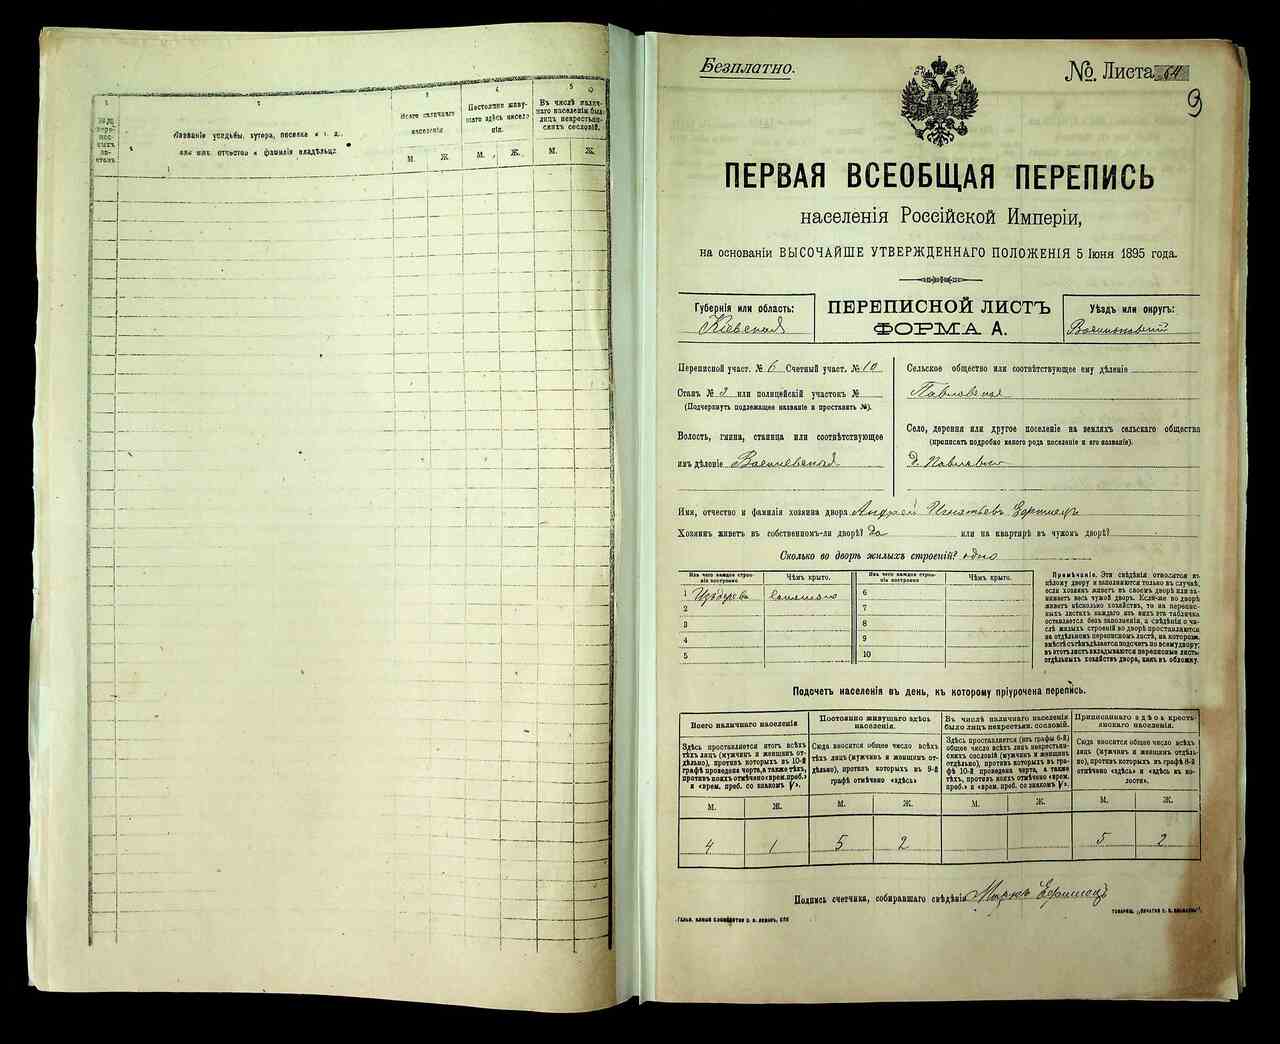 1
2
3
4
5
6
Названіе усадьбы, хутора, поселка и т. д.
имя отчество и фамилія владѣльца
Всего наличнаго
населенія
Постоянно живу-
щаго здѣсь населе
нія.
Въ числѣ налич-
наго населенія было
лицъ некрестьян-
скихъ сословій.
М. Ж. М. Ж. М. Ж.
Безплатно.
№ Листа 64
9
ПЕРВАЯ ВСЕОБЩАЯ ПЕРЕПИСЬ
населенія Россійской Имперіи,
на основаніи ВЫСОЧАЙШЕ УТВЕРЖДЕННАГО ПОЛОЖЕНІЯ 5 Іюня 1895 года.
Губернія или область:
Кіевская
ПЕРЕПИСНОЙ ЛИСТЪ
ФОРМА А.
Уѣздъ или округъ:
Васильковскій
Переписной участ. № 6 Счетный участ. № 10
Станъ № 2 или полицейскій участокъ №
(Подчеркнуть подлежащее названіе и проставить №).
Волость, гмина, станица или соотвѣтствующее
имъ дѣленіе
Сельское общество или соотвѣтствующее ему дѣленіе
Павловское
Село, деревня или другое поселеніе на земляхъ сельскаго общества
(прописать подробно какого рода поселеніе и его названіе).
Д. Павловка
Имя, отчество и фамилія хозяина двора Андрей Игнатьевъ
Хозяинъ живетъ въ собственномъ-ли дворѣ? Да или на квартирѣ въ чужомъ дворѣ?
Сколько во дворѣ жилыхъ строеній? одно
Изъ чего каждое строе-
ніе построено
Чѣмъ крыто.
1 Изъ дерева Соломою
2
3
4
5
Изъ чего каждое строе-
ніе построено
Чѣмъ крыто.
6
7
8
9
10
Примѣчаніе. Эти свѣдѣнія относятся къ
цѣлому двору и заполняются только въ случаѣ,
если хозяинъ живетъ въ своемъ дворѣ или за-
нимаетъ весь чужой дворъ. Если-же во дворѣ
живетъ нѣсколько хозяйствъ, то на перепис-
ныхъ листахъ каждаго изъ нихъ эта табличка
оставляется безъ заполненія, а свѣдѣнія о чи-
слѣ жилыхъ строеній во дворѣ проставляются
на отдѣльномъ переписномъ листѣ, на которомъ
вмѣстѣ съ тѣмъ дѣлается подсчетъ по всему двору;
въ этотъ листъ вкладываются переписные листы
отдѣльныхъ хозяйствъ двора, какъ въ обложку.
Подсчетъ населенія въ день, къ которому пріурочена перепись.
Всего наличнаго населенія
Здѣсь проставляется итогъ всѣхъ
тѣхъ лицъ (мужчинъ и женщинъ от-
дѣльно), противъ которыхъ въ 10-й
графѣ проведена черта, а также тѣхъ,
противъ коихъ отмѣчено «врем. преб.»
и «врем. преб. со знакомъ V».
М. Ж.
4 1
Постоянно живущаго здѣсь
населенія.
Сюда вносится общее число всѣхъ
тѣхъ лицъ (мужчинъ и женщинъ от-
дѣльно), противъ которыхъ въ 9-й
графѣ отмѣчено «здѣсь»
М. Ж.
5 2
Въ числѣ наличнаго населенія
было лицъ некрестьян. сословій.
Здѣсь проставляется (изъ графы 6-й)
общее число всѣхъ лицъ некрестьян-
скихъ сословій (мужчинъ и женщинъ
отдѣльно), противъ которыхъ въ гра-
фѣ 10-й проведена черта, а также
тѣхъ, противъ коихъ отмѣчено «врем.
преб.» и «врем. преб. со знакомъ V».
М. Ж.
Приписаннаго здѣсь кресть-
янскаго населенія.
Сюда вносится общее число всѣхъ
лицъ (мужчинъ и женщинъ отдѣль-
но), противъ которыхъ въ графѣ 8-й
отмѣчено «здѣсь» и «здѣсь въ во-
лости».
М. Ж.
5 2
Подпись счетчика, собиравшаго свѣдѣнія Маркъ